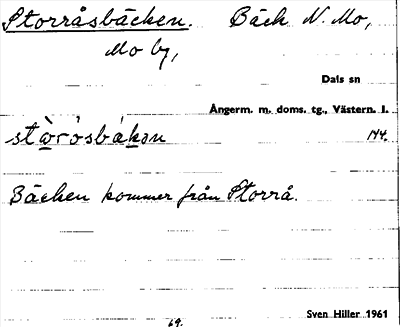 Storråsbäcken. Bäck N. Mo,
Mo by,
Dals sn
Ångerm. m. doms. tg., Västern. l.
stòrósbákən 174.
Bäcken kommer från Storrå.
Sven Hiller 1961
69.